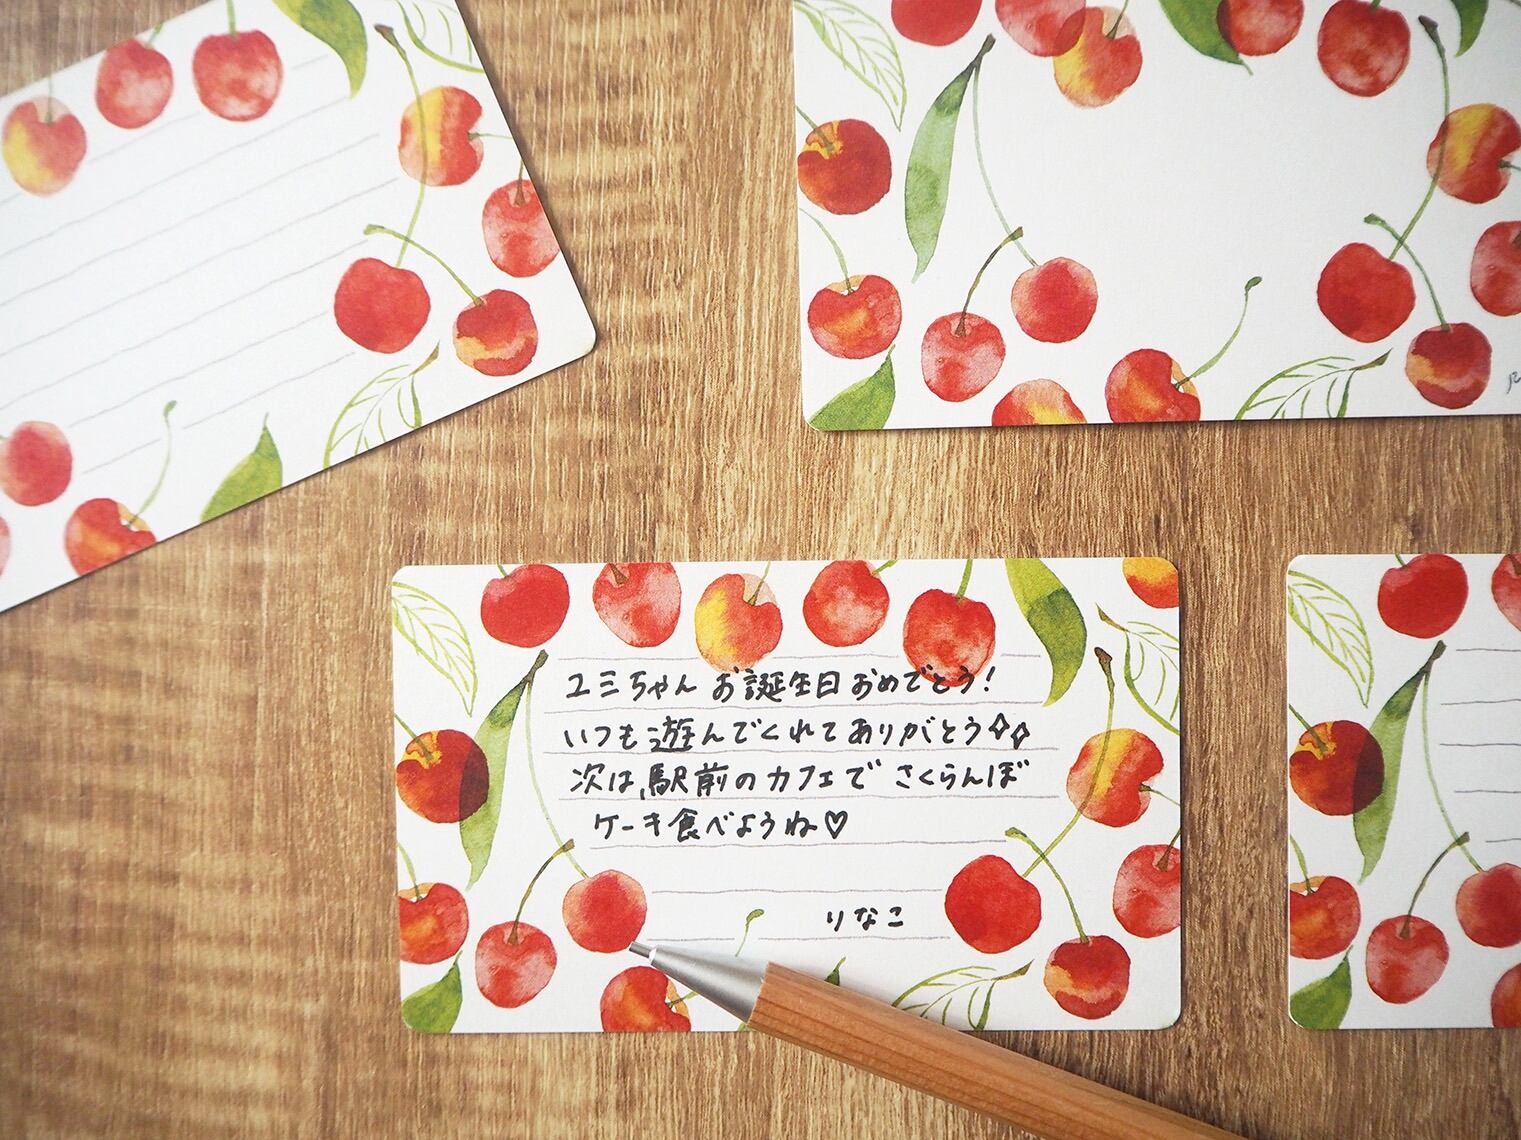 ユミちゃん お誕生日おめでとう!
いつも遊んでくれてありがとう✧✧
次は、駅前のカフェで さくらんぼ
ケーキ食べようね♡
りなこ